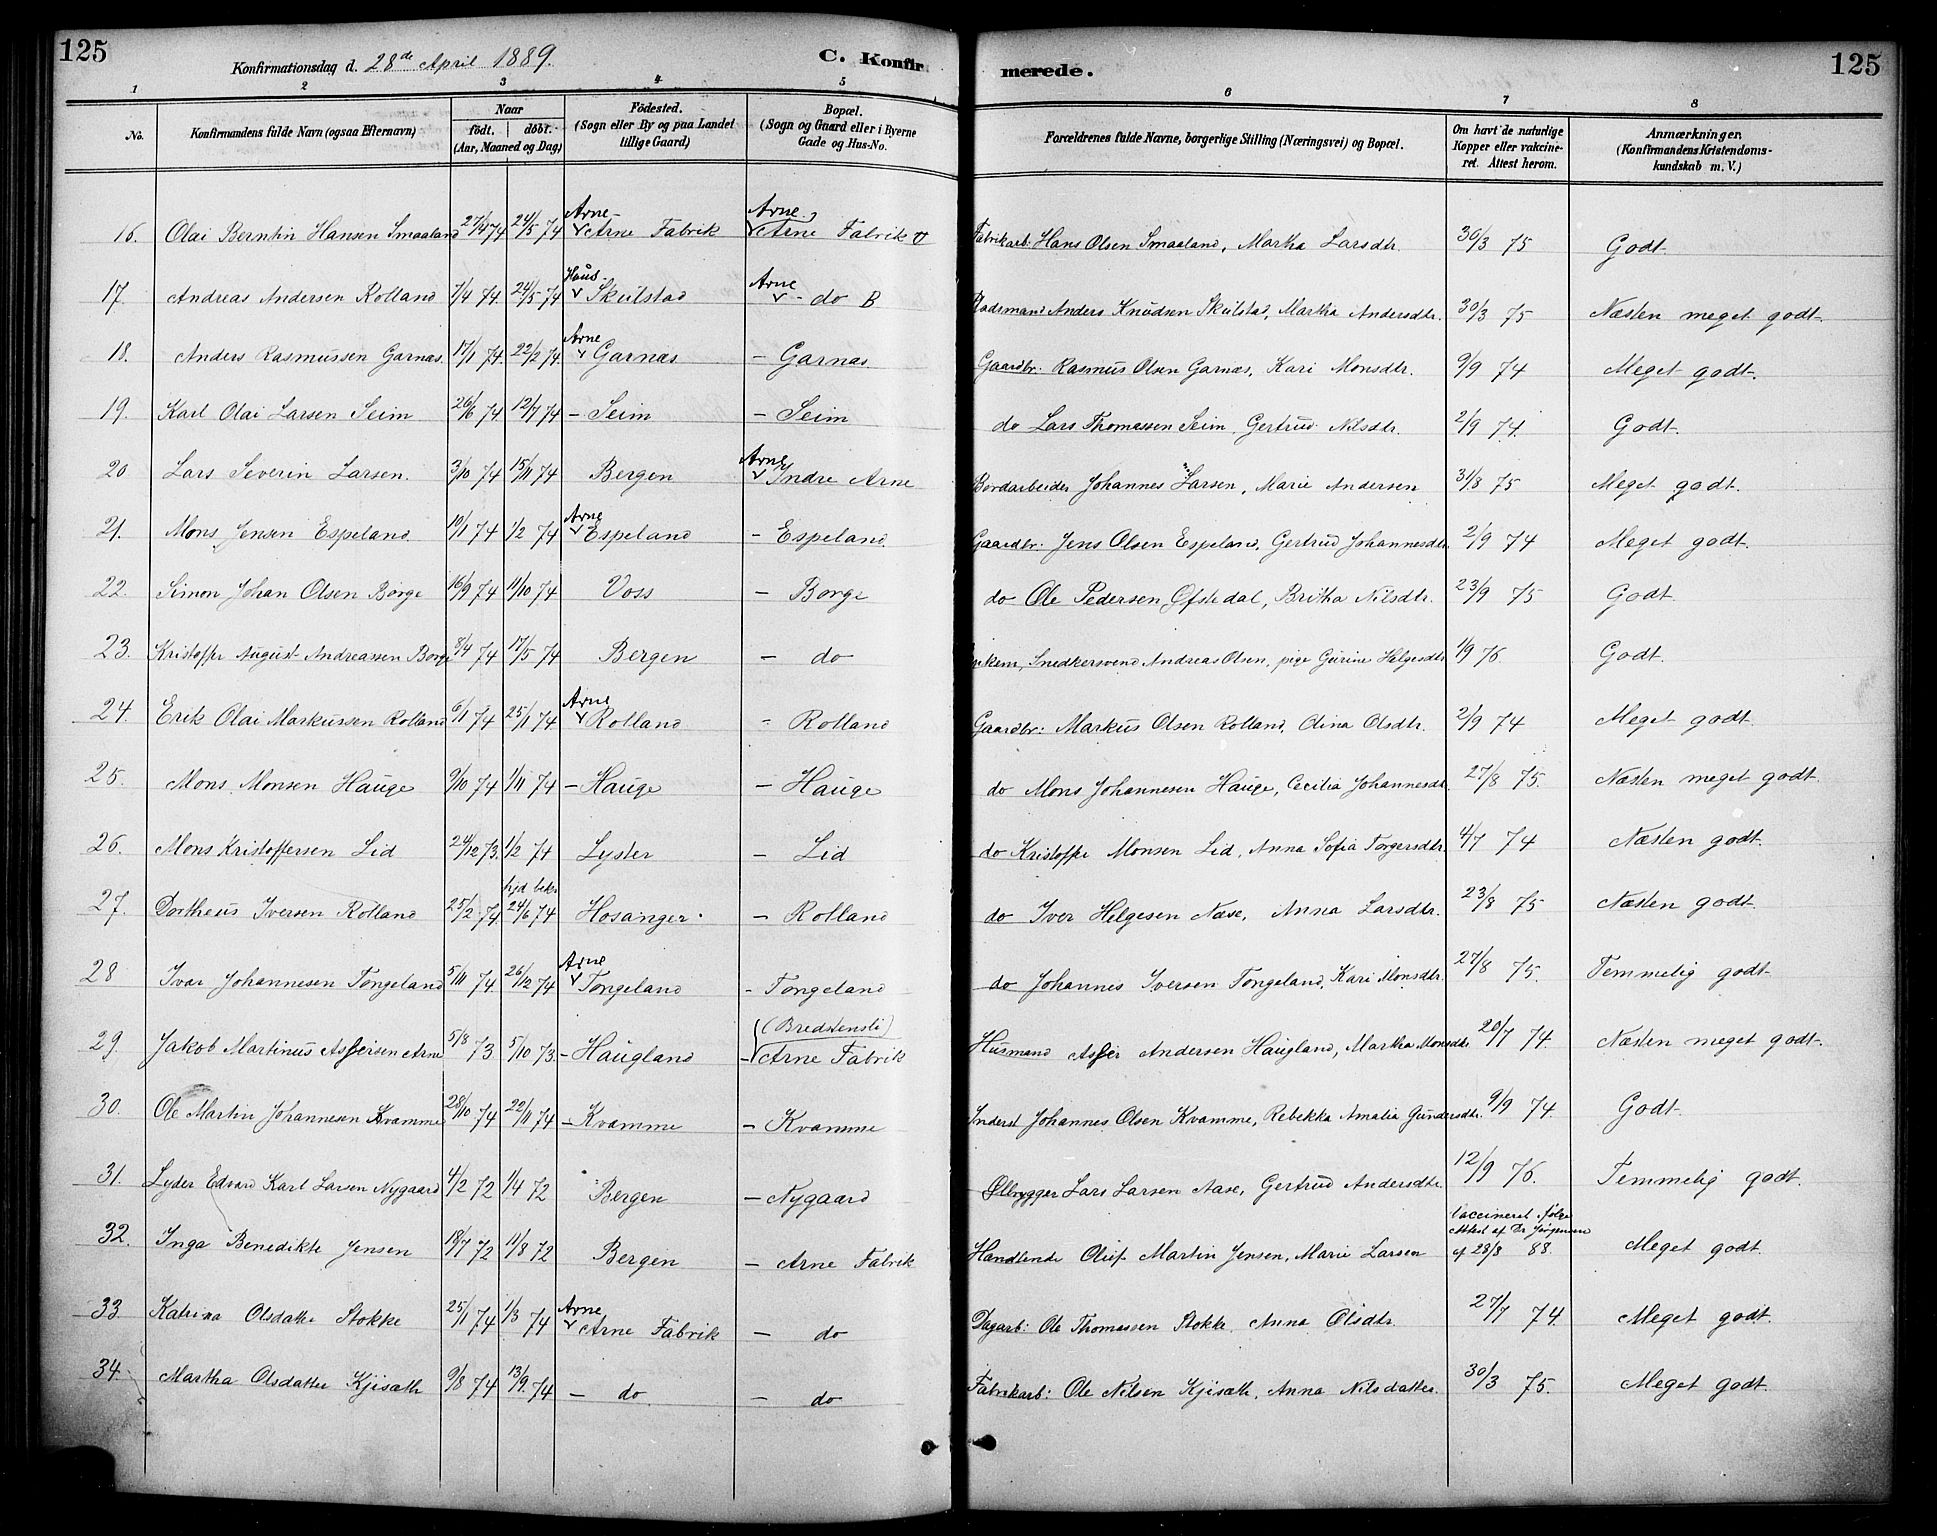 125
Konfirmationsdag d. 28de April 1889.
C. Konfirmerede.
125
1 2 3 4 5 6 7 8
No. Konfirmandens fulde Navn (ogsaa Efternavn) Naar födt. döbt. (Aar, Maaned og Dag) Födested. (Sogn eller By og paa Landet tillige Gaard) Bopæl. (Sogn og Gaard eller i Byerne Gade og Hus-No. Forældrenes fulde Navne, borgerlige Stilling (Næringsvei) og Bopæl. Om havt de naturlige Kopper eller vakcineret. Attest herom. Anmærkninger. (Konfirmandens Kristendomskundskab m. V.)
16. Olai Berntin Hansen Smaaland 27/4 74 24/5 74 Arne- Arne Fabrik Arne Arne Fabrik Fabrikarb: Hans Olsen Smaaland, Martha Larsdtr. 30/3 75 Godt.
17. Andreas Andersen Rolland 7/4 74 24/5 74 Haus- Skulstad Arne - do B Pladsmand Anders Knudsen Skulstad, Martha Andersdtr. 30/3 75 Næsten meget godt.
18. Anders Rasmussen Garnæs. 17/1 74. 22/2 74. Arne Garnæs - Garnæs. Gaardbr: Rasmus Olsen Garnæs, Kari Monsdtr. 9/9 74 Meget godt.
19. Karl Olai Larsen Seim 26/6 74 12/7 74 - Seim - Seim do Lars Thomassen Seim, Gertrud Nilsdtr. 2/9 74. Godt.
20 Lars Severin Larsen. 3/10 74 15/11 74 Bergen Arne Indre Arne Bordarbeider Johannes Larsen, Marie Andersen 31/8 75 Meget godt.
21. Mons Jensen Espeland 10/1 74 1/2 74 Arne Espeland - Espeland. Gaardbr: Jens Olsen Espeland, Gertrud Johannesdtr. 2/9 74 Meget godt.
22. Simon Johan Olsen Borge 16/9 74 11/10 74 Voss - Borge do Ole Pedersen Øfstedal, Britha Nilsdtr. 23/9 75 Godt.
23. Kristoffer August Andreassen Borge 8/4 74 17/5 74 Bergen - do Snedkersvend Andreas Olsen, pige Gurine Helgesdtr 1/9 76. Godt.
24. Erik Olai Markussen Rolland 6/1 74 25/1 74 Arne Rolland - Rolland Gaardbr: Markus Olsen Rolland, Olina Olsdtr. 2/9 74 Meget godt.
25. Mons Monsen Hauge 9/10 74 1/11 74 - Hauge - Hauge do Mons Johannesen Hauge, Cecilia Johannesdtr. 27/8 75. Næsten meget godt.
26. Mons Kristoffersen Lid 24/12 73. 1/2 74 Lyster - Lid do Kristoffer Monsen Lid, Anna Sofia Torgersdtr. 4/7 74 Næsten godt.
27. Dortheus Iversen Rolland 25/2 74 hjd bekr 24/6 74 Hosanger. - Rolland do Iver Helgesen Næse, Anna Larsdtr. 23/8 75 Næsten godt.
28 Ivar Johannesen Tongeland 5/11 74. 26/12 74 Arne Tongeland - Tongeland do Johannes Iversen Tongeland, Kari Monsdtr. 27/8 75. Temmelig godt.
29. Jakob Martinus Asseisen Arne 5/8 73 5/10 73. - Haugland - (Bredstensli) Arne Fabrik Husmand Assei Andersen Haugland, Martha Monsdtr 20/7 74. Næsten meget godt.
30. Ole Martin Johannesen Kvamme 28/10 74 22/11 74 - Kvamme - Kvamme Inderst Johannes Olsen Kvamme, Rebekka Amalia Gundersdtr. 9/9 74. Godt.
31. Lyder Edvard Karl Larsen Nygaard 4/2 72 1/4 72 Bergen - Nygaard Ølbrygger Lars Larsen Aase, Gertrud Andersdtr. 12/9 76. Temmelig godt.
32. Inga Benedikte Jensen 18/7 72 11/8 72 Bergen - Arne Fabrik Handlende Oluf Martin Jensen, Marie Larsen Vaccineret ifølge Attest af Dr Jørgensen af 28/8 88. Meget godt.
33. Katrina Olsdatter Stokke 25/1 74 1/3 74 Arne Arne Fabrik - do Dagarb: Ole Thomassen Stokke, Anna Olsdtr. 27/7 74. Meget godt.
34. Martha Olsdatter Kjisæth 9/8 74 13/9 74 - do - do Fabrikarb: Ole Nilsen Kjisæth, Anna Nilsdatter. 30/3 75. Meget godt.